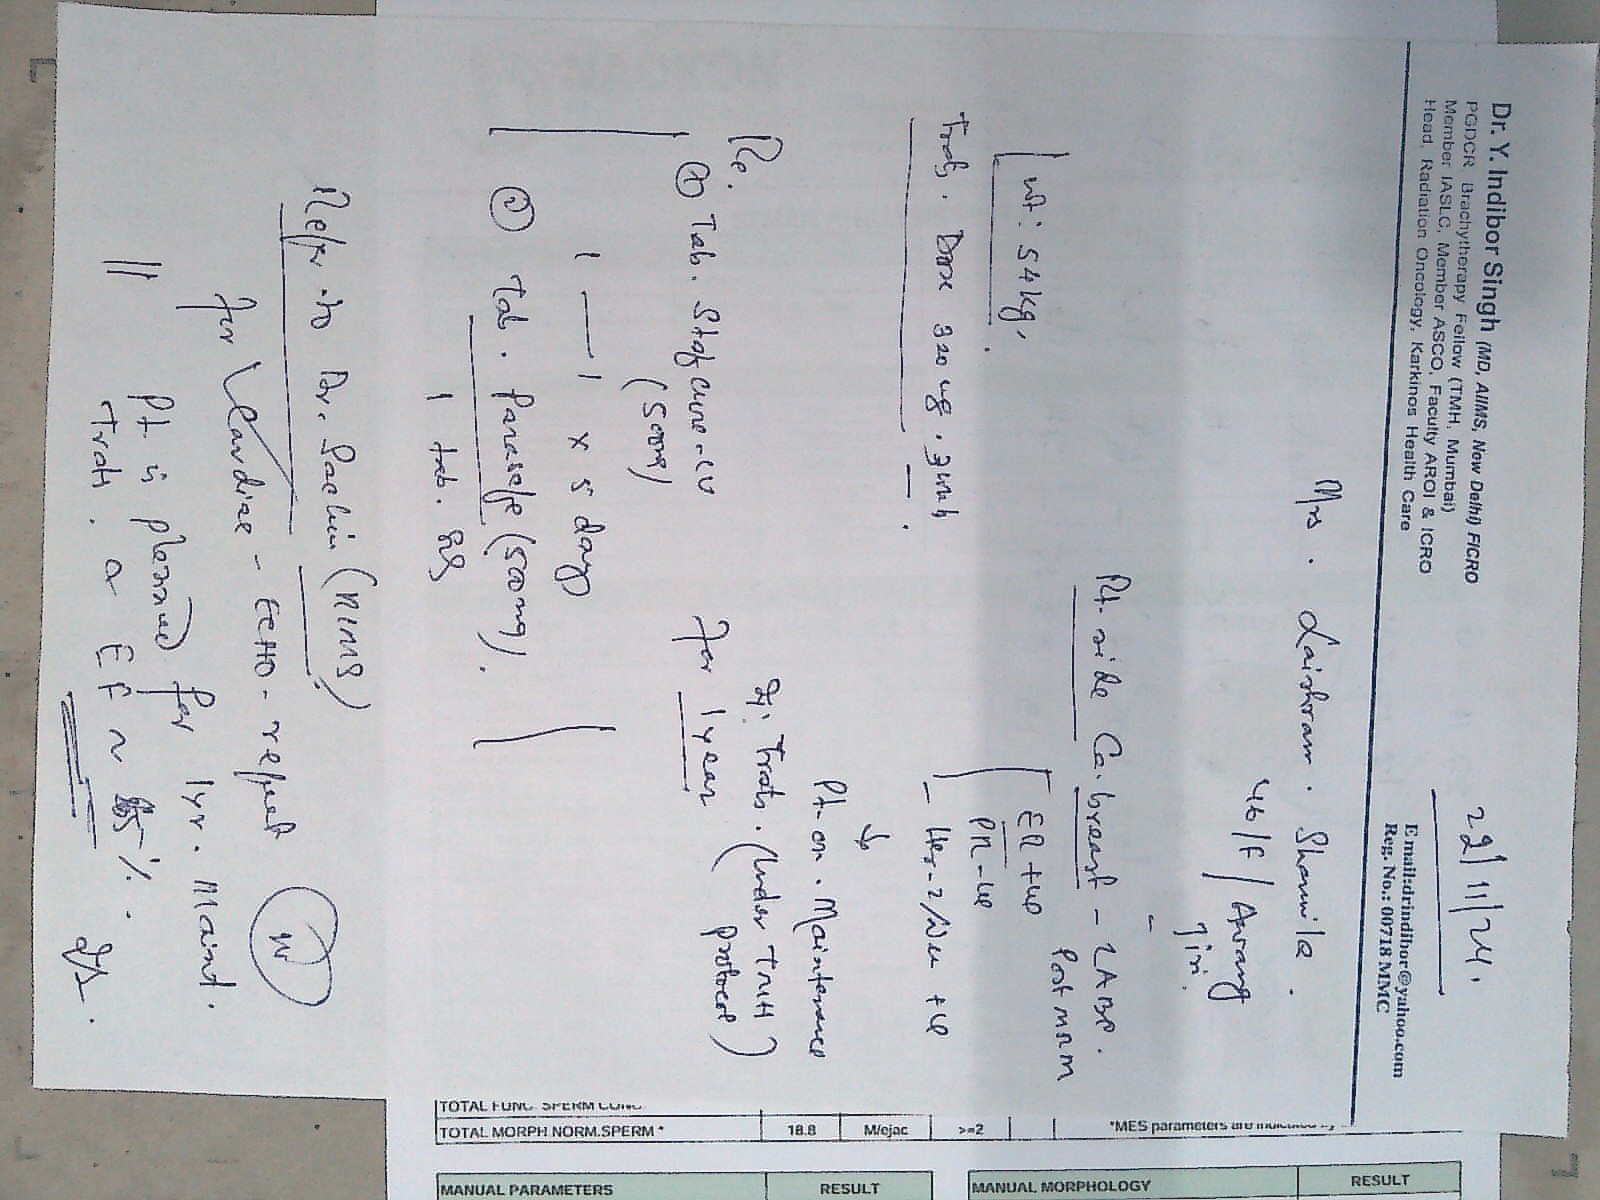 Dr. Y. Indibor Singh (MD, AIIMS, New Delhi) FICRO
PGDCR Brachytherapy Fellow (TMH, Mumbai)
Member IASLC, Member ASCO, Faculty AROI & ICRO
Head, Radiation Oncology, Karkinos Health Care
22/11/24.
Email:drindibor@yahoo.com
Reg. No.: 00718 MMC
Mrs. Laishram. Sharmila.
46/F/ Awang
Rt. side Ca. breast -
Post MRM
ER +ve
PR -ve
Her-2/neu +ve
wt: 54kg,
Trats. Dose 320 mg.
Pt. on. Maintenance
Trats. (Under TMH
protocol)
For 1 year
① Tab.
(500mg)
1 — 1 x 5 days
② Tab. (500mg).
1 tab.
Refer to Dr. Sachin (RIMS)
For Cardiac - ECHO - report
Pt is planned for 1yr. Maint.
Trats. EF ~ %.
TOTAL FUNC. SPERM CONC.
TOTAL MORPH NORM.SPERM * 18.8 M/ejac >=2
*MES parameters are
MANUAL PARAMETERS RESULT
MANUAL MORPHOLOGY RESULT